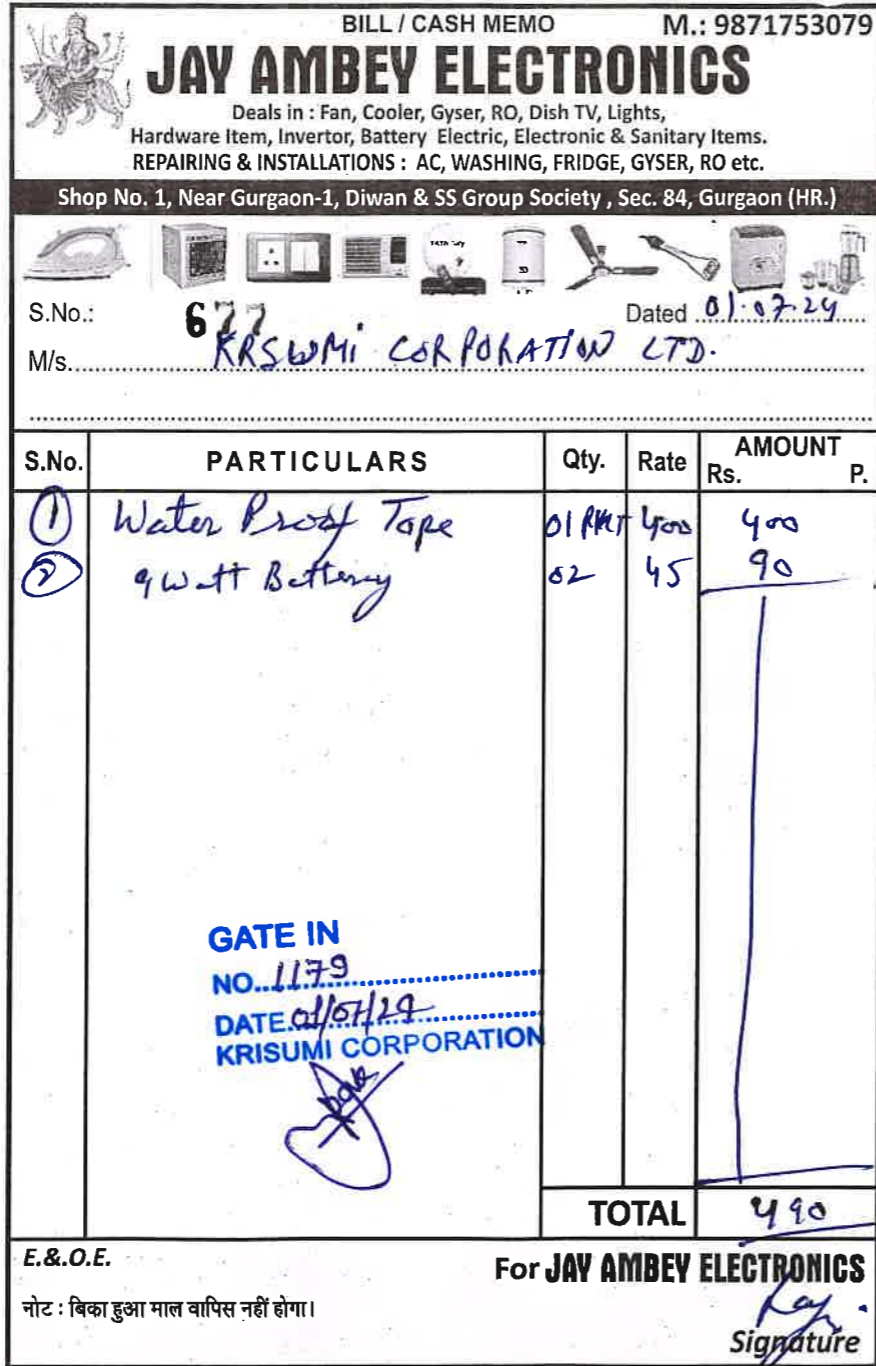 BILL / CASH MEMO M.: 9871753079
JAY AMBEY ELECTRONICS
Deals in : Fan, Cooler, Gyser, RO, Dish TV, Lights,
Hardware Item, Invertor, Battery Electric, Electronic & Sanitary Items.
REPAIRING & INSTALLATIONS : AC, WASHING, FRIDGE, GYSER, RO etc.
Shop No. 1, Near Gurgaon-1, Diwan & SS Group Society , Sec. 84, Gurgaon (HR.)
S.No.: 677 Dated 01.07.24
M/s. KRSUMI CORPORATION LTD.
S.No. PARTICULARS Qty. Rate AMOUNT
Rs. P.
1 Water Proof Tape 01 PKT 400 400
2 9 Watt Battery 02 45 90
GATE IN
NO. 1179
DATE. 01/07/24
KRISUMI CORPORATION
TOTAL 490
E.&.O.E. For JAY AMBEY ELECTRONICS
नोट : बिका हुआ माल वापिस नहीं होगा।
Signature